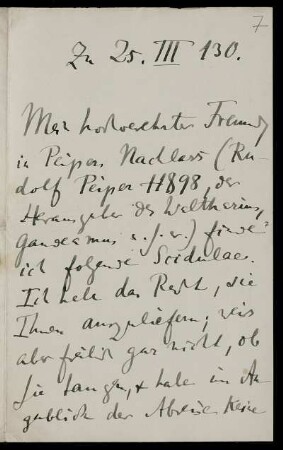 7
Zu 25. III 130.
Mein hochverehrter Freund,
in Peipers Nachlass (Ru-
dolf Peiper †1898, der
Herausgeber des Waltharius,
Gaudeamus u.s.w.) finde
ich folgende Scidulae.
Ich habe das Recht, sie
Ihnen auszuliefern; weis
aber freilich gar nicht, ob
sie taugen, & habe im Au-
genblick der Abreise keine